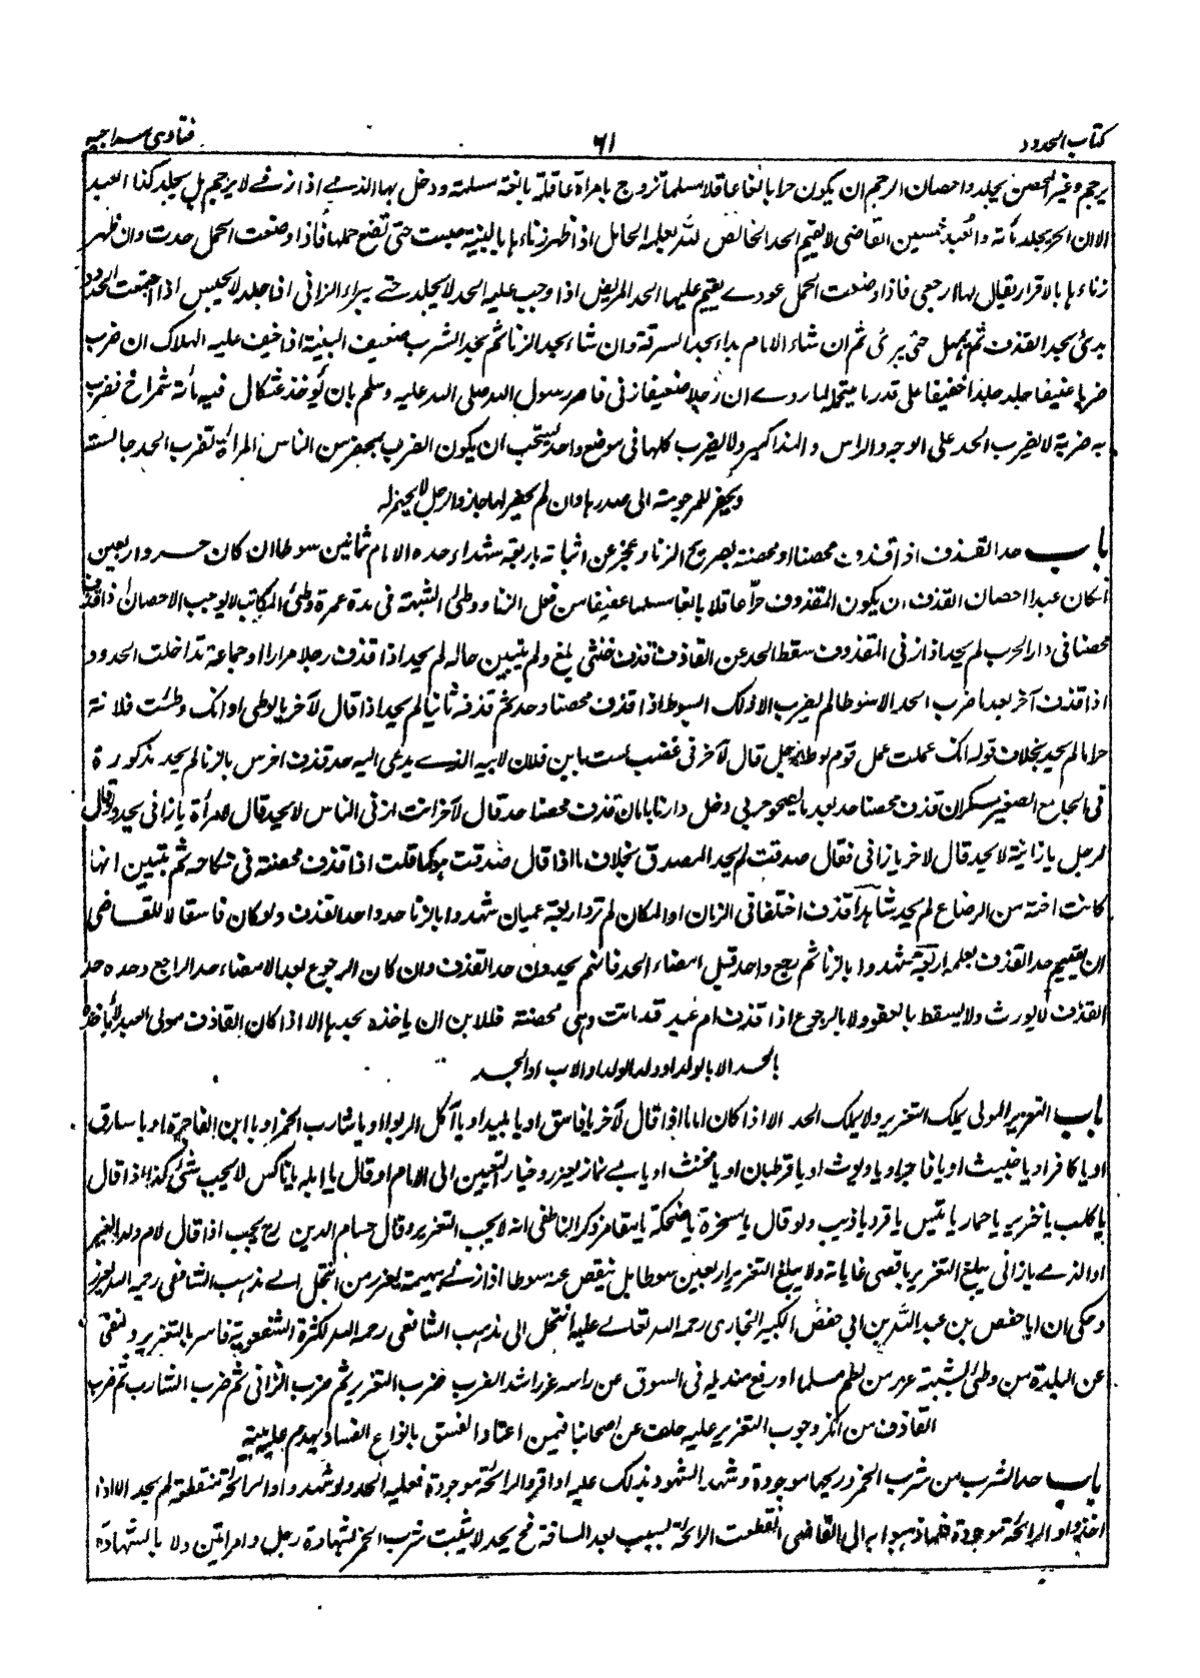 كتاب الحدود ٦١ فتاوى سراجيه
يرجم وغير المحصن يجلد واحصان الرجم ان يكون حرا بالغا عاقلا مسلما تزوج بامرأة عاقلة بالغة مسلمة ودخل بها الذمى اذا زنى لا يرجم بل يجلد كذا العبد
الا ان الحر يجلد مأته والعبد خمسين القاضى لا يقيم الحد الخالص لله بعلمه الحامل اذا ظهر زناءها بالبينة حبست حتى تضع حملها فاذا وضعت الحمل حدت وان ظهر
زناءها بالاقرار يقال لها ارجعى فاذا وضعت الحمل عودى يقيم عليها الحد المريض اذا وجب عليه الحد لا يجلد حتى يبراء الزانى اذا جلد لا يحبس اذا اجتمعت الحدود
بدئ بحد القذف ثم يمهل حتى برئ ثم ان شاء الامام بداء بحد السرقة وان شاء بحد الزنا ثم بحد الشرب ضعيف البنية اذا خيف عليه الهلاك ان ضرب
ضربا عنيفا جلد جلدا خفيفا على قدر ما يتحمل لما روى ان رجلا ضعيفا زنى فامر رسول الله صلى الله عليه وسلم بان يوخذ عثكال فيه مأته شمراخ فضرب
به ضربة لا يضرب الحد على الوجه والراس والمذاكير ولا يضرب كلها فى موضع واحد يستحب ان يكون الضرب بمحضر من الناس المرأة تضرب الحد جالسة
ويحفر للمرجومة الى صدرها وان لم يحفر لها جاز والرجل لا يحفر له
باب حد القذف اذا قذف محصنا او محصنة بصريح الزنا وعجز عن اثباته باربعة شهداء حده الامام ثمانين سوطا ان كان حرا واربعين
ان كان عبدا احصان القذف ان يكون المقذوف حرا عاقلا بالغا مسلما عفيفا من فعل الزنا ووطئ الشبهة فى مدة عمرة وطئ المكاتبة لا يوجب الاحصان اذا قذف
محصنا فى دار الحرب لم يحد اذا زنى المقذوف سقط الحد عن القاذف قذف خنثى بلغ ولم يتبين حاله لم يحد اذا قذف رجلا مرارا او جماعة تداخلت الحدود
اذا قذف آخر بعد ما ضرب الحد الا سوطا لم يضرب الا ذلك السوط اذا قذف محصنا وحد ثم قذفه ثانيا لم يحد اذا قال لآخر يالوطى او انك وطئت فلانة
حراما لم يحد بخلاف قوله انك عملت عمل قوم لوط رجل قال لآخر فى غضب لست بابن فلان لابيه الذى يدعى اليه حد قذف اخرس بالزنا لم يحد مذكورة
فى الجامع الصغير سكران قذف محصنا حد بعد ما يصحو حربى دخل دارنا بامان قذف محصنا حد قال لآخر انت ازنى الناس لا يحد قال لامرأة يا زانى يحد ولو قال
لرجل يا زانية لا يحد قال لاخر يا زانى فقال صدقت لم يحد المصدق بخلاف ما اذا قال صدقت هو كما قلت اذا قذف محصنة فى نكاحه ثم تبين انها
كانت اخته من الرضاع لم يحد شاهدا قذف اختلفا فى الزمان او المكان لم ترد اربعة عميان شهدوا بالزنا حدوا حد القذف ولو كان فاسقا لا للقاضى
ان يقيم حد القذف بعلمه اربعة شهدوا بالزنا ثم رجع واحد قبل امضاء الحد فانهم يحدون حد القذف وان كان الرجوع بعد الامضاء حد الراجع وحده حد
القذف لا يورث ولا يسقط بالعفو ولا بالرجوع اذا قذف ام عبد قد ماتت وهى محصنة فللابن ان ياخذه بحدها الا اذا كان القاذف مولى العبد لا ياخذه
بالحد الا بالولد او ولد الولد او الاب او الجد
باب التعزير المولى يملك التعزير ولا يملك الحد الا اذا كان اماما اذا قال لآخر يا فاسق او يا بليد او يا آكل الربوا او يا شارب الخمر او يا ابن الفاجرة او يا سارق
او يا كافر او يا خبيث او يا فاجر او يا ديوث او يا قرطبان او يا مخنث او يا بے نماز يعزر وخيار التعيين الى الامام او قال يا ابله يا ناكس لا يجب شئ كذا اذا قال
يا كلب يا خنزير يا حمار يا تيس يا قرد يا ذيب ولو قال يا سخرة يا ضحكة يا مقامر ذكر الناطفى انه لا يجب التعزير وقال حسام الدين رح يجب اذا قال لام ولد الغير
او الذمى يا زانى يبلغ التعزير باقصى غاياته ولا يبلغ التعزير اربعين سوطا بل ينقص عنه سوطا اذا زنى ببهيمة يعزر من انتحل الى مذهب الشافعى رحمه الله يعزر
وحكى ان ابا حفص بن عبد الله بن ابى حفص الكبير البخارى رحمه الله تعالى عليه انتحل الى مذهب الشافعى رحمه الله لكثرة الشفعوية فامر بالتعزير ونفى
عن البلدة من وطئ بشبهة عزر من لطم مسلما او رفع منديله فى السوق عن راسه عزر اشد الضرب ضرب التعزير ثم ضرب الزانى ثم ضرب الشارب ثم ضرب
القاذف من انكر وجوب التعزير عليه حلف عن اصحابنا فيمن اعتاد الفسق بانواع الفساد يهدم عليه بيته
باب حد الشرب من شرب الخمر وريحها موجودة وشهد الشهود بذلك عليه او اقر والرائحة موجودة فعليه الحد ولو شهدوا والرائحة منقطعة لم يحد الا اذا
اخذوه والرائحة موجودة فلما ذهبوا به الى القاضى انقطعت الرائحة بسبب بعد المسافة فح يحد لا يثبت شرب الخمر بشهادة رجل وامراتين ولا بالشهادة